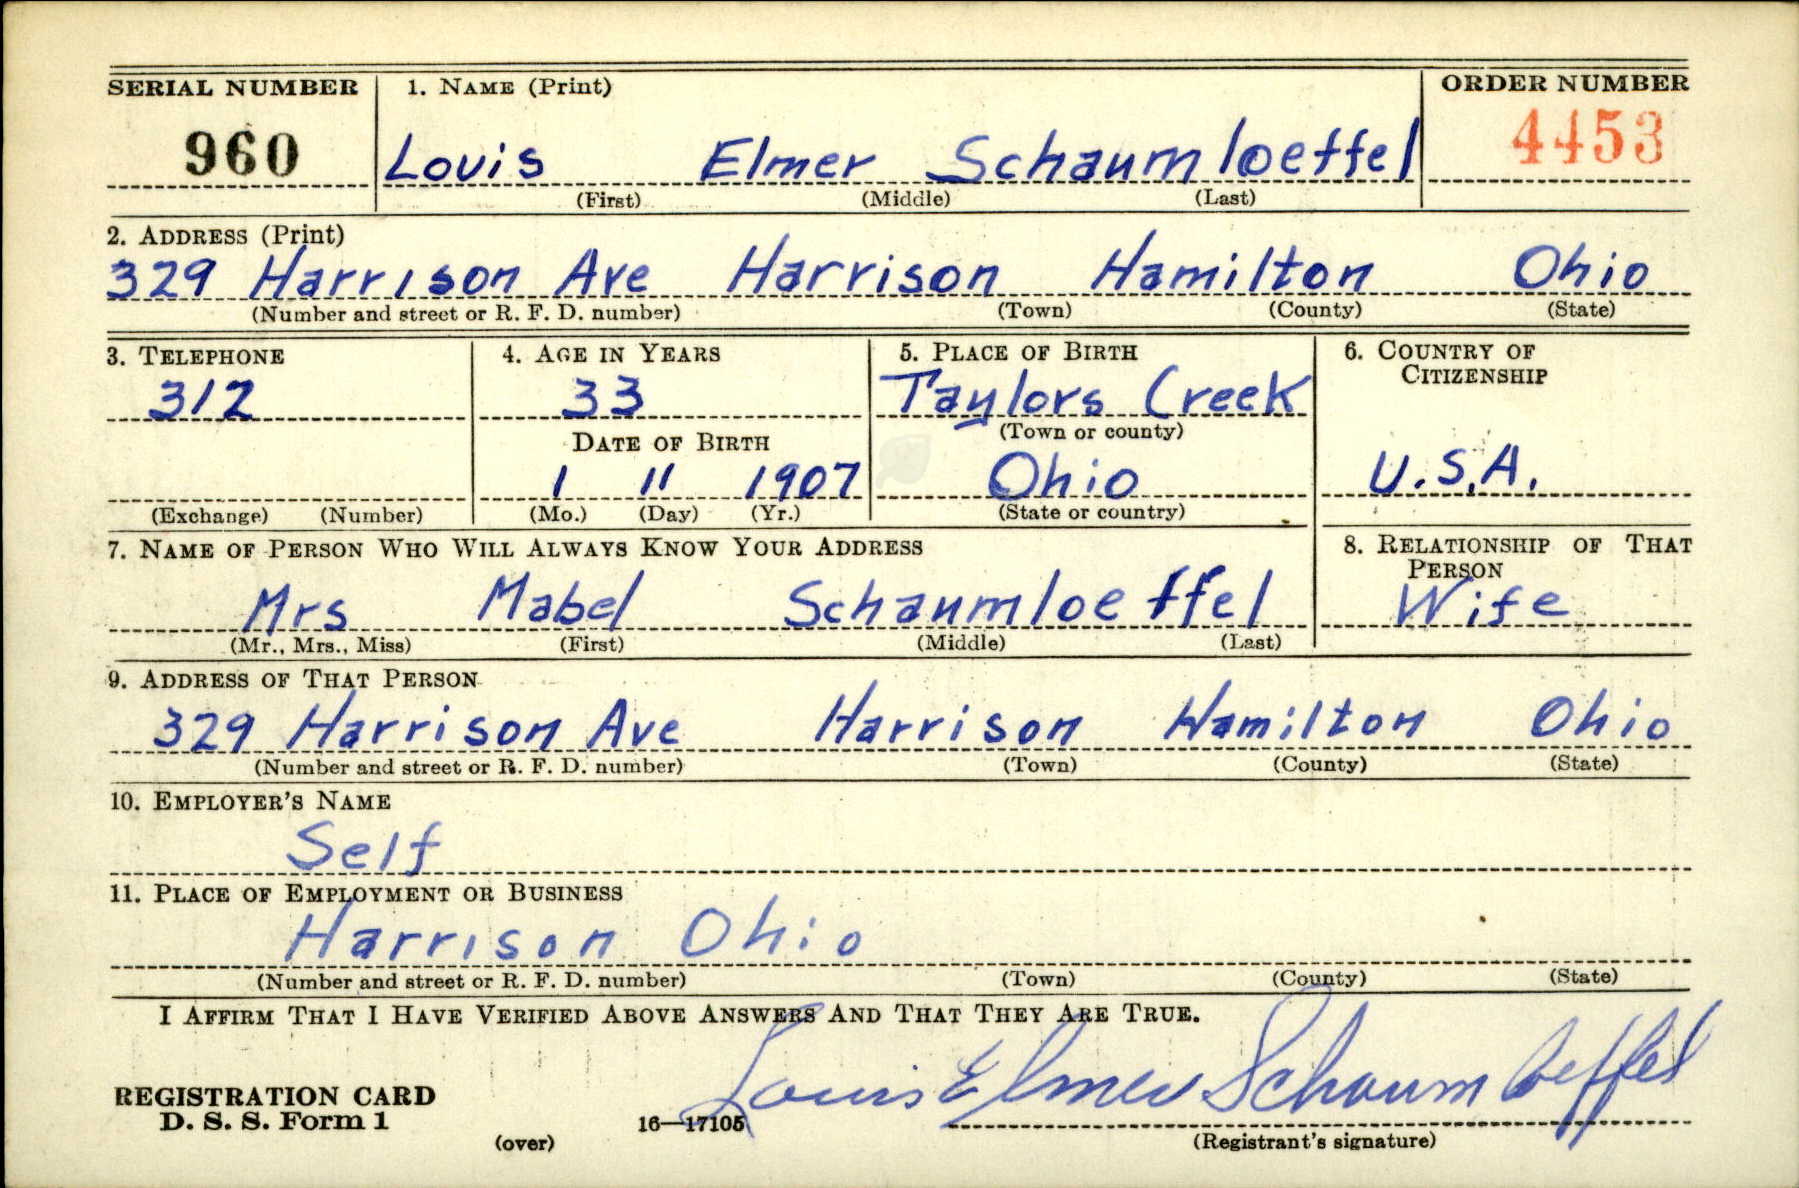 SERIAL NUMBER 1. NAME (Print) ORDER NUMBER
960 Louis Elmer Schaumloeffel 4453
(First) (Middle) (Last)
2. ADDRESS (Print)
329 Harrison Ave Harrison Hamilton Ohio
(Number and street or R. F. D. number) (Town) (County) (State)
3. TELEPHONE 4. AGE IN YEARS 5. PLACE OF BIRTH 6. COUNTRY OF
CITIZENSHIP
312 33 Taylors Creek
(Town or county)
DATE OF BIRTH
1 11 1907 Ohio U.S.A.
(Exchange) (Number) (Mo.) (Day) (Yr.) (State or country)
7. NAME OF PERSON WHO WILL ALWAYS KNOW YOUR ADDRESS 8. RELATIONSHIP OF THAT
PERSON
Mrs Mabel Schaumloeffel Wife
(Mr., Mrs., Miss) (First) (Middle) (Last)
9. ADDRESS OF THAT PERSON
329 Harrison Ave Harrison Hamilton Ohio
(Number and street or R. F. D. number) (Town) (County) (State)
10. EMPLOYER'S NAME
Self
11. PLACE OF EMPLOYMENT OR BUSINESS
Harrison Ohio
(Number and street or R. F. D. number) (Town) (County) (State)
I AFFIRM THAT I HAVE VERIFIED ABOVE ANSWERS AND THAT THEY ARE TRUE.
Louis Elmer Schaumloeffel
REGISTRATION CARD
D. S. S. Form 1 16—17105
(over) (Registrant's signature)